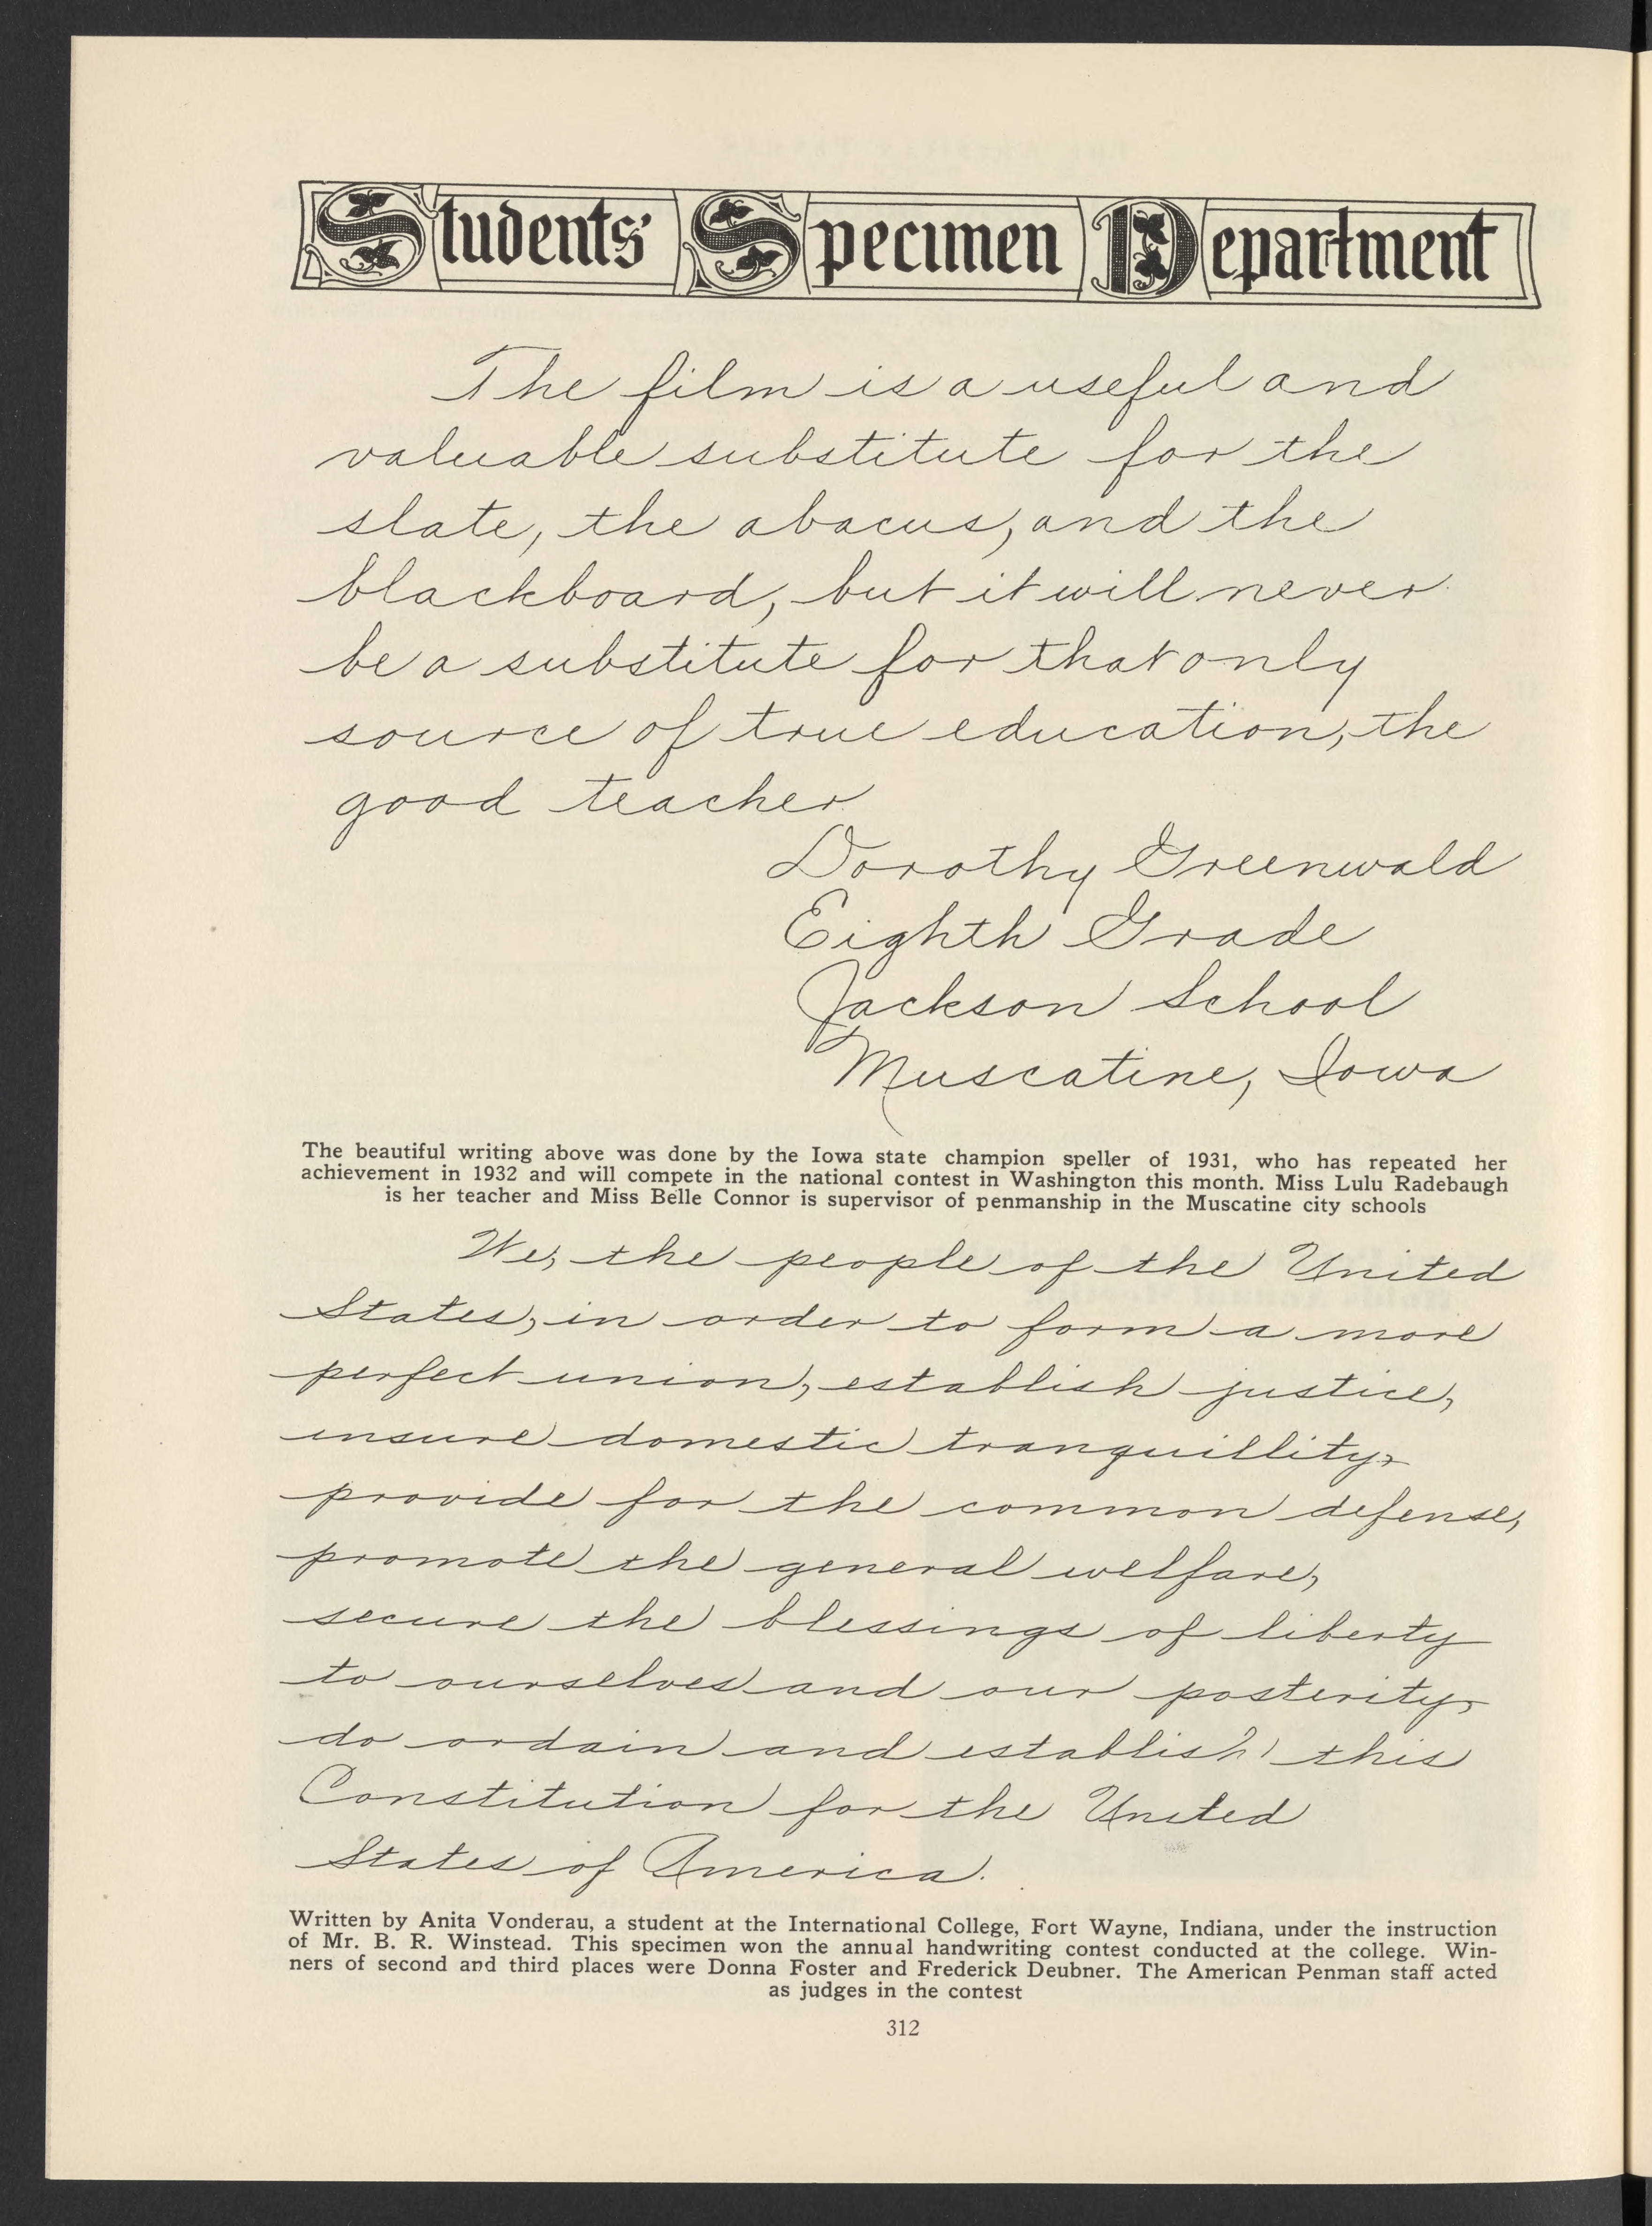 Students' Specimen Department
The film is a useful and
valuable substitute for the
slate, the abacus, and the
blackboard, but it will never
be a substitute for that only
source of true education, the
good teacher
Dorothy Greenwald
Eighth Grade
Jackson School
Muscatine, Iowa
The beautiful writing above was done by the Iowa state champion speller of 1931, who has repeated her
achievement in 1932 and will compete in the national contest in Washington this month. Miss Lulu Radebaugh
is her teacher and Miss Belle Connor is supervisor of penmanship in the Muscatine city schools
We, the people of the United
States, in order to form a more
perfect union, establish justice,
insure domestic tranquillity,
provide for the common defense,
promote the general welfare,
secure the blessings of liberty
to ourselves and our posterity,
do ordain and establish this
Constitution for the United
States of America.
Written by Anita Vonderau, a student at the International College, Fort Wayne, Indiana, under the instruction
of Mr. B. R. Winstead. This specimen won the annual handwriting contest conducted at the college. Win-
ners of second and third places were Donna Foster and Frederick Deubner. The American Penman staff acted
as judges in the contest
312